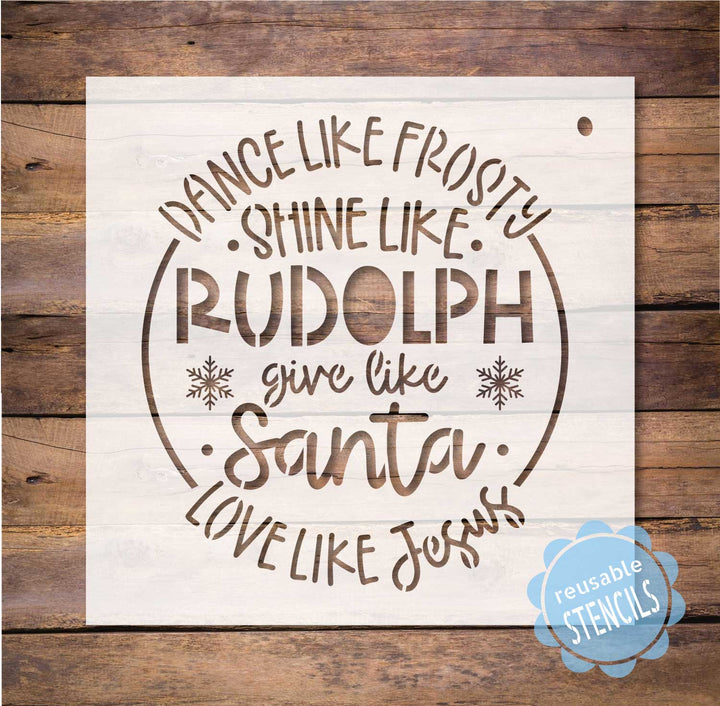 DANCE LIKE FROSTY
• SHINE LIKE •
RUDOLPH
give like
• Santa •
LOVE LIKE Jesus
reusable
STENCILS